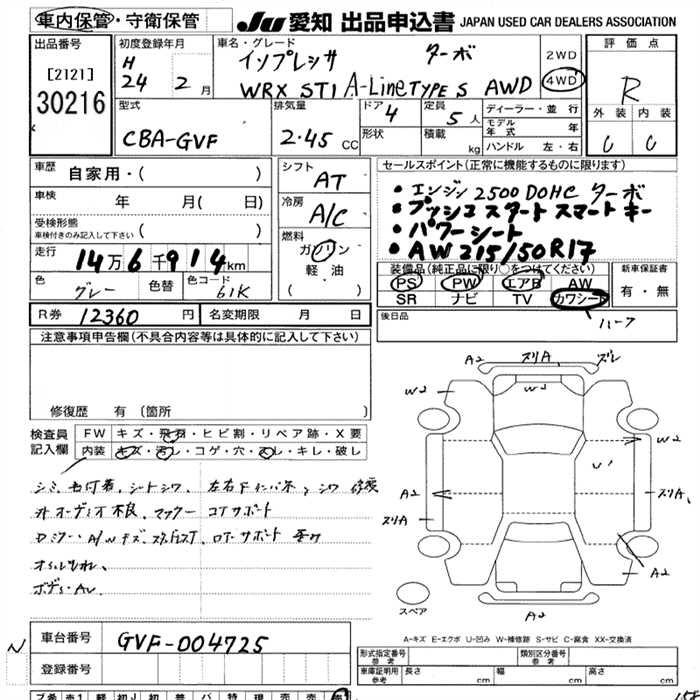 車内保管・守衛保管
JU 愛知 出品申込書 JAPAN USED CAR DEALERS ASSOCIATION
出品番号
[2121]
30216
初度登録年月
H
24 2 月
車名・グレード
インプレッサ ターボ
WRX STI A-Line TYPE S AWD
2WD
4WD
評価点
R
外装 内装
C C
型式
CBA-GVF
排気量
2.45 CC
ドア 4
定員 5 人
形状
積載 kg
ディーラー・並行
モデル年式 年
ハンドル 左・右
車歴 自家用・( )
車検 年 月( 日)
受検形態
車検付きのみ記入して下さい ( )
走行 14万6千914km
色 グレー
色替
色コード 61K
シフト
AT
冷房
A/C
燃料
ガソリン
軽油
( )
セールスポイント(正常に機能するものに限ります)
・エンジン2500DOHC ターボ
・プッシュスタートスマートキー
・パワーシート
・AW215/50R17
装備品(純正品に限り○をつけてください)
PS PW エアB AW
SR ナビ TV カワシート
新車保証書
有・無
ハーフ
後日品
R券 12360 円
名変期限 月 日
注意事項申告欄(不具合内容等は具体的に記入して下さい)
修復歴 有(箇所
検査員記入欄
FW キズ・飛石・ヒビ割・リペア跡・X要
内装 キズ・汚レ・コゲ・穴・スレ・キレ・破レ
A2 スリA ズレ
W2 W2
W2
U'
A2 スリA
スリA
A2
A2
スペア
A-キズ E-エクボ U-凹み W-補修跡 S-サビ C-腐食 XX-交換済
N
車台番号 GVF-004725
登録番号
形式指定番号 参考
類別区分番号 参考
車庫証明用 参考 長さ cm 幅 cm 高さ cm